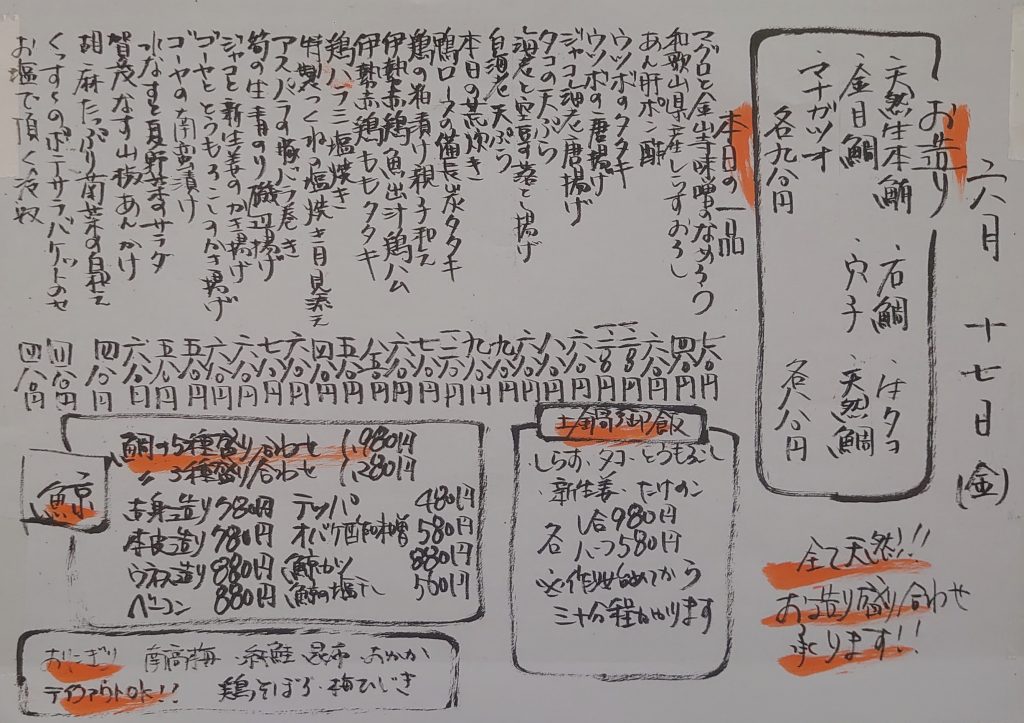 六月十七日(金)
お造り
天然生本鮪 石鯛 生タコ
金目鯛 穴子 天然鯛
マナガツオ
各九八〇円 各六八〇円
全て天然!!
お造り盛り合わせ
承ります!!
本日の一品
マグロと金山寺味噌のなめろう 七八〇円
和歌山県産しらすおろし 四八〇円
あん肝ポン酢 六八〇円
ウツボのタタキ
ウツボの唐揚げ
ジャコ海老唐揚げ 六八〇円
タコの天ぷら 八八〇円
海老と空豆の落とし揚げ 六八〇円
白海老天ぷら 九八〇円
本日の荒炊き 九八〇円
鴨ロースの備長炭タタキ
鶏の粕漬け親子和え 七八〇円
伊勢赤鶏 魚出汁鶏ハム 六八〇円
伊勢赤鶏ももタタキ 八八〇円
鶏ハラミ塩焼き 五八〇円
特製つくねの塩焼き 月見添え 四八〇円
アスパラの豚バラ巻き 六八〇円
筍の生青のり磯辺揚げ 七八〇円
ジャコと新生姜のかき揚げ 六八〇円
ゴーヤととうもろこしのかき揚げ 六八〇円
ゴーヤの南蛮漬け 五八〇円
水なすと夏野菜のサラダ 五八〇円
賀茂なす山椒あんかけ 六八〇円
胡麻たっぷり菊菜の白和え 四八〇円
くっすくのポテサラバケットのせ 四八〇円
お塩で頂く冷奴 四八〇円
土鍋御飯
しらす・タコ・とうもろこし
・新生姜・たけのこ
各 一合980円
各 ハーフ580円
※作り始めてから
三十分程かかります
鯨
鯨の5種盛り合わせ 1,980円
〃 3種盛り合わせ 1,280円
赤身造り 780円 テッパ 480円
本皮造り 780円 オバケ酢味噌 580円
ウネス造り 880円 鯨カツ 880円
ベーコン 880円 鯨の塩干し 580円
おにぎり 南高梅 ・ 紅鮭 ・ 昆布 ・ おかか
テイクアウトOK!! 鶏そぼろ・梅ひじき